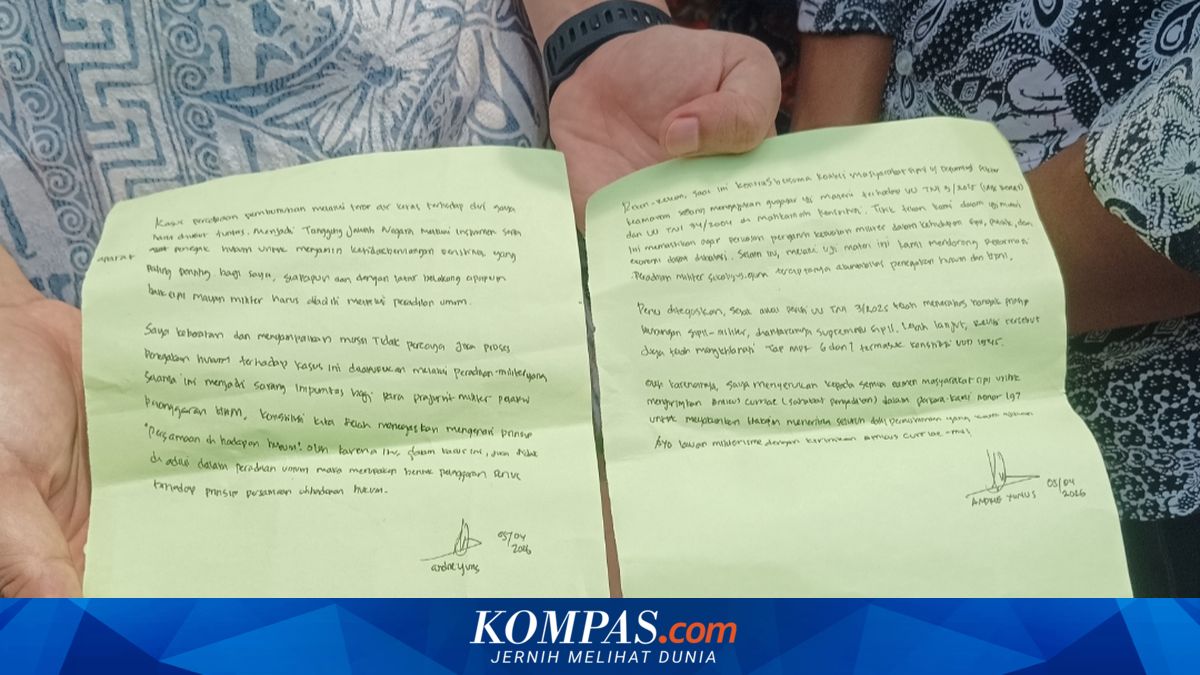 Kasus percobaan pembunuhan melalui teror air keras terhadap diri saya
harus diusut tuntas. Menjadi Tanggung Jawab Negara melalui instrumen serta
aparat penegak hukum untuk menjamin ketidakberulangan peristiwa, yang
paling penting bagi saya, siapapun dan dengan latar belakang apapun
baik sipil maupun militer harus diadili melalui peradilan umum.
Saya keberatan dan menyampaikan mosi Tidak percaya jika proses
Penegakan hukum terhadap kasus ini dilakukan melalui peradilan militer yang
selama ini menjadi sarang impunitas bagi para prajurit militer pelaku
pelanggaran HAM, Konstitusi kita telah menegaskan mengenai prinsip
"Persamaan di hadapan hukum". Oleh karena itu, dalam kasus ini, jika tidak
di adili dalam peradilan umum maka merupakan bentuk pelanggaran serius
terhadap prinsip persamaan dihadapan hukum.
05/04
2026
andrie yunus
Rekan-rekan, saat ini KontraS bersama Koalisi masyarakat sipil u/ Reformasi Sektor
Keamanan sedang mengajukan gugatan uji materi terhadap UU TNI 3/2025
dan UU TNI 34/2004 di Mahkamah Konstitusi. Titik tekan kami dalam uji materi
ini memastikan agar perluasan pengaruh kekuatan militer dalam kehidupan sipil, politik, dan
ekonomi dapat dibatasi. Selain itu, melalui uji materi ini kami mendorong Reformasi
Peradilan militer terciptanya akuntabilitas penegakan hukum dan HAM.
Perlu ditegaskan, sejak awal UU TNI 3/2025 telah menerabas prinsip
hubungan sipil-militer, diantaranya supremasi sipil. Lebih lanjut, Revisi tersebut
juga telah mengkhianati Tap MPR 6 dan 7 termasuk konstitusi UUD 1945.
Oleh karenanya, saya menyerukan kepada semua elemen masyarakat sipil untuk
mengirimkan Amicus Curiae (sahabat pengadilan) dalam perkara kami nomor 197
untuk meyakinkan Hakim menerima seluruh dalil permohonan yang kami
Ayo lawan militerisme dengan kirimkan amicus curiae-mu!
05/04
2026
ANDRIE YUNUS
KOMPAS.com
JERNIH MELIHAT DUNIA